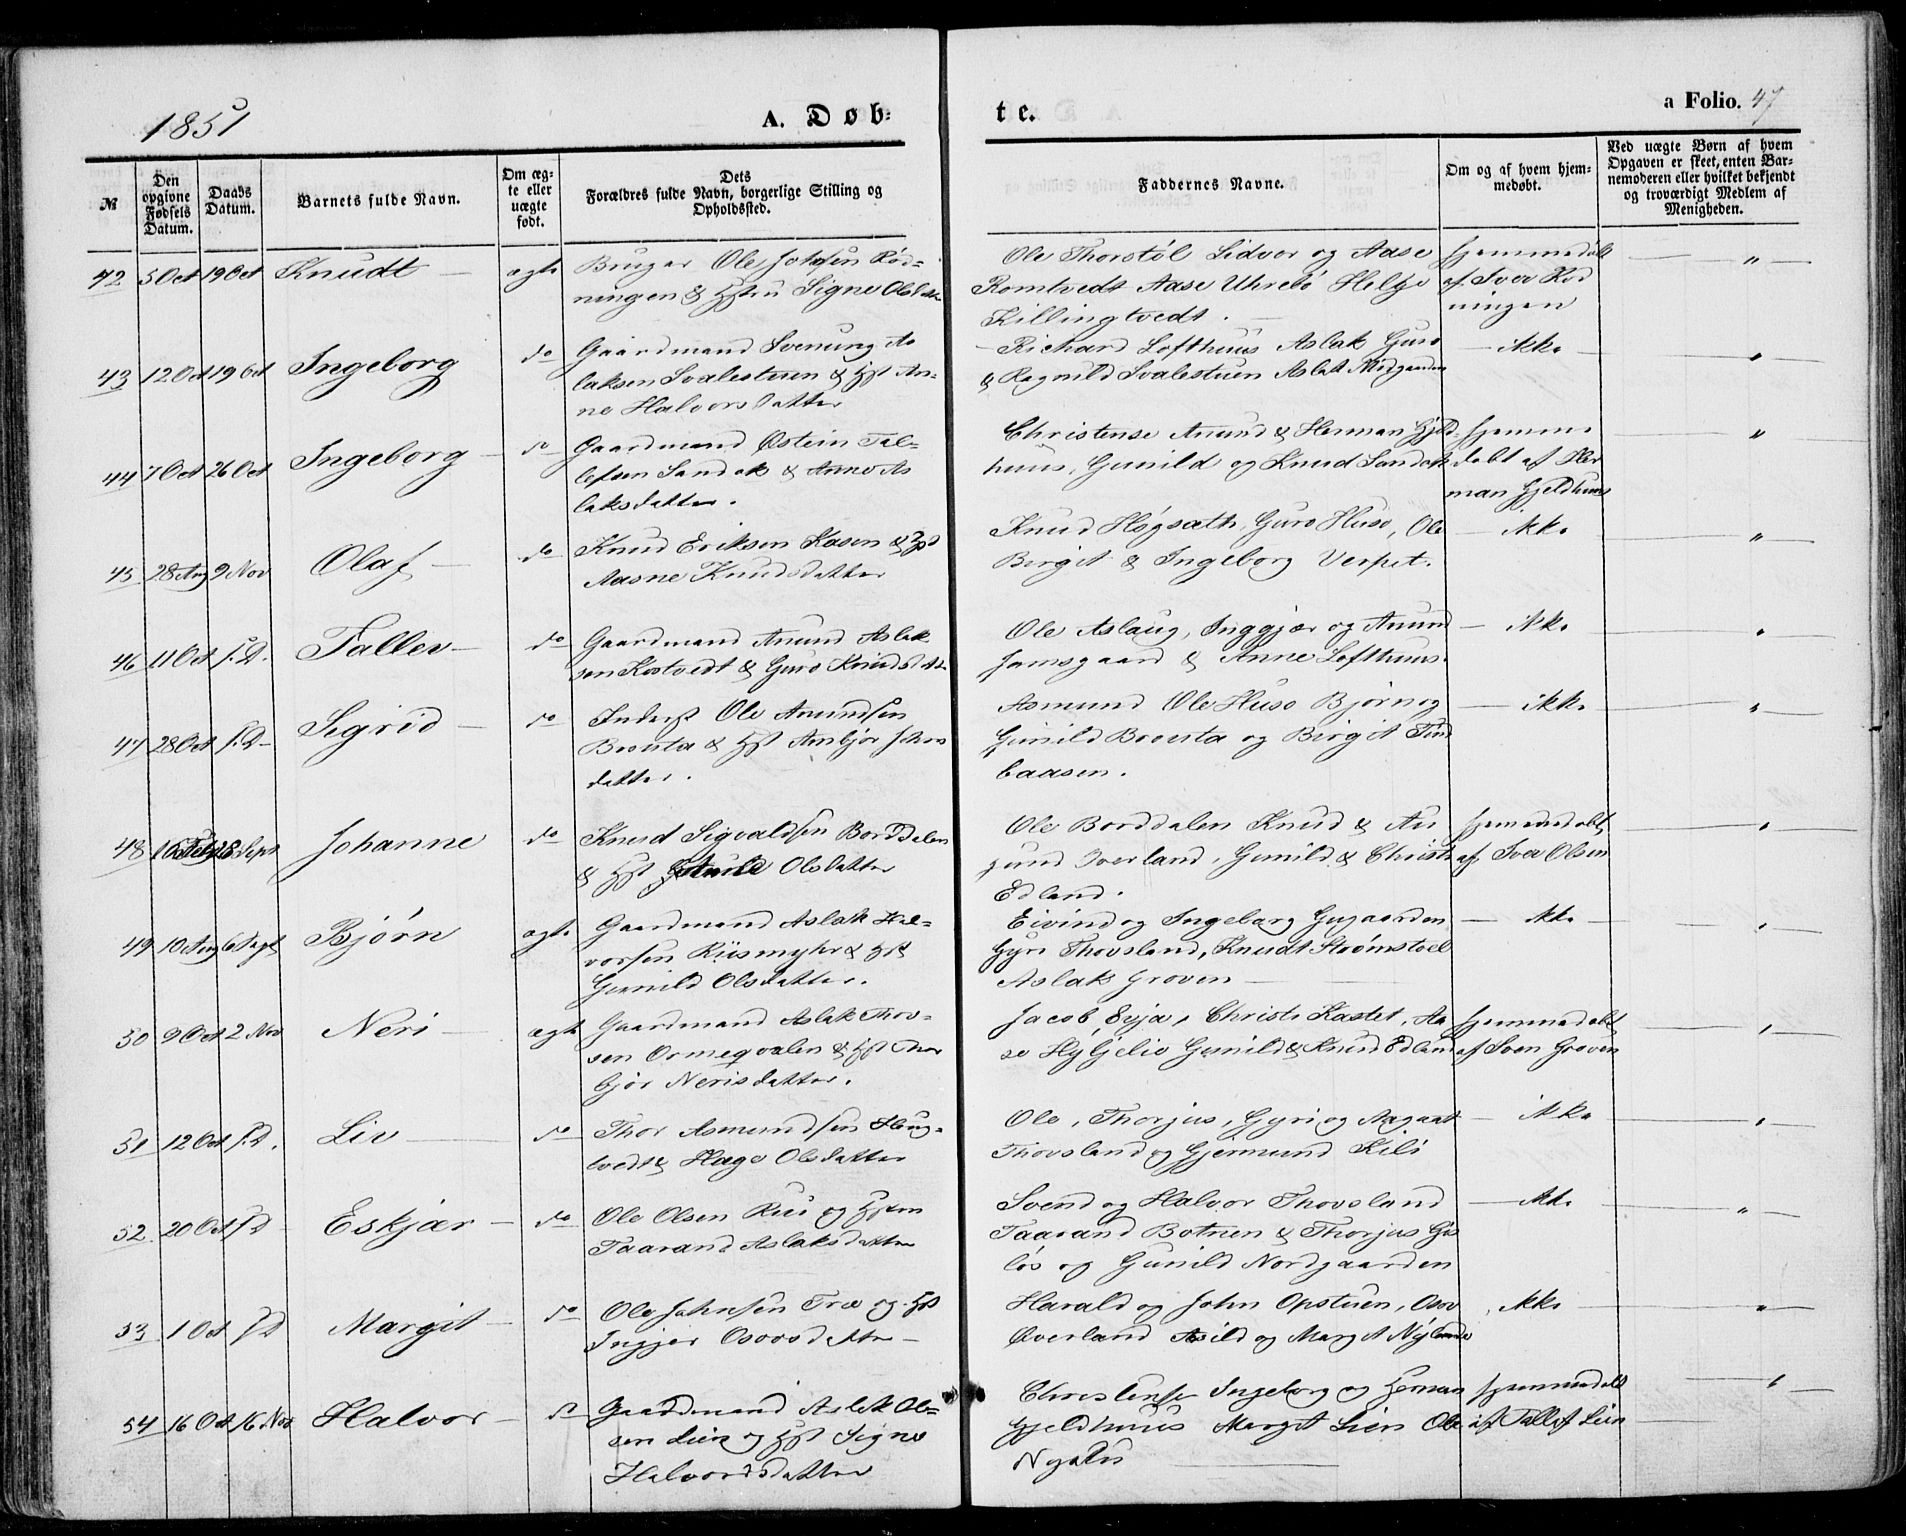 1851
A. Døb-
te.
a Folio. 47
№
Den opgivne Fødsels Datum.
Daabs Datum.
Barnets fulde Navn.
Om ægte eller uægte født.
Dets Forældres fulde Navn, borgerlige Stilling og Opholdssted.
Faddernes Navne.
Om og af hvem hjemmedøbt.
Ved uægte Børn af hvem Opgaven er skeet, enten Barnemoderen eller hvilket bekjendt og troværdigt Medlem af Menigheden.
42 5 Oct 19 Oct Knudt ægte Bruger Ole Johnsen Rød-
ningen & Hstru Signe Olsdatter
Ole Thorstøl Sidvor og Aase
Romtvedt Aase Uhrebø Helge
Killingtvedt.
hjemmedøbt
af Iver Rød
ningen
43 12 Oct 19 Oct Ingeborg do Gaardmand Svenung As
laksen Svalestuen & Hst An-
ne Halvorsdatter
Richard Lofthuus Aslak Guro
& Ragnild Svalestuen Aslak Midgaarden
ikke
44 7 Oct 26 Oct Ingeborg do Gaardmand Østein Tal-
lefsen Sandok & Anne As
laksdatter.
Christense Anund & Herman Gjeld
huus, Gunild og Knud Sandok
hjemme
døbt af Her
man Gjeldhuus
45 28 Aug 9 Nov Olaf do Knud Eriksen Kasen & Hst
Aasne Knudsdatter
Knud Høgsæth, Guro Huso, Ole
Birgit & Ingeborg Verpet.
ikke
46 11 Oct s.D. Tallev do Gaardmand Anund Aslak
sen Kostvedt & Guro Knudsdatter
Ole Aslaug, Inggjær og Anund
Jamsgaard & Anne Lofthuus.
ikke
47 28 Oct s.D. Sigrid do Inderst Ole Anundsen
Brousta & Hst Anbjør Johns
datter.
Asmund Ole Huso Bjørn og
Gunild Brousta og Birgit Tind
baasen.
ikke
48 28 Sept Johanne do Knud Sigvaldsen Borddalen
& Hst Olsdatter
Ole Borddalen Knud & Au
gund Overland, Gunild & Christi
Edland.
hjemmedøbt
af Iver Olsen
49 10 Aug 6 Sept Bjørn ægte Gaardmand Aslak Hal-
vorsen Riismyhr & Hst
Gunild Olsdatter.
Eivind og Ingeborg Gugaarden
Gyri Thovsland, Knudt Strømstoel
Aslak Groven
ikke
50 9 Oct 2 Nov Neri ægte Gaardmand Aslak Thov-
sen Ormegvalen & Hst Thor
bjør Nerisdatter.
Jacob Eyja, Christi Kastet, Aa
se Hylljelie Gunild & Knud Edland
hjemmedøbt
af Sven Groven
51 12 Oct s.D. Liv do Thor Asmundsen Haug-
tvedt & Hæge Olsdatter
Ole, Thorjus, Gyri og Aagaat
Thovsland og Gjermund Kilø
ikke
52 20 Oct s.D. Eskjær do Ole Olsen Riis og Hstru
Taarand Aslaksdatter
Svend og Halvor Thovsland
Taarand Botnen & Thorjus Gis
løs og Gunild Nordgaarden
ikke
53 1 Oct s.D. Margit do Ole Johnsen Træ og Hst
Ingjer Osovsdatter
Harald og John Opstuen, Osov
Øverland Asild og Margit Nylande
ikke
54 16 Oct 16 Nov Halvor do Gaardmand Aslak Ol-
sen Lien og Hst Signe
Halvorsdatter
Christense Ingeborg og Herman
Gjeldhuus Margit Lien Ole
Nyhuus
hjemmedøbt
af Tallef Lien